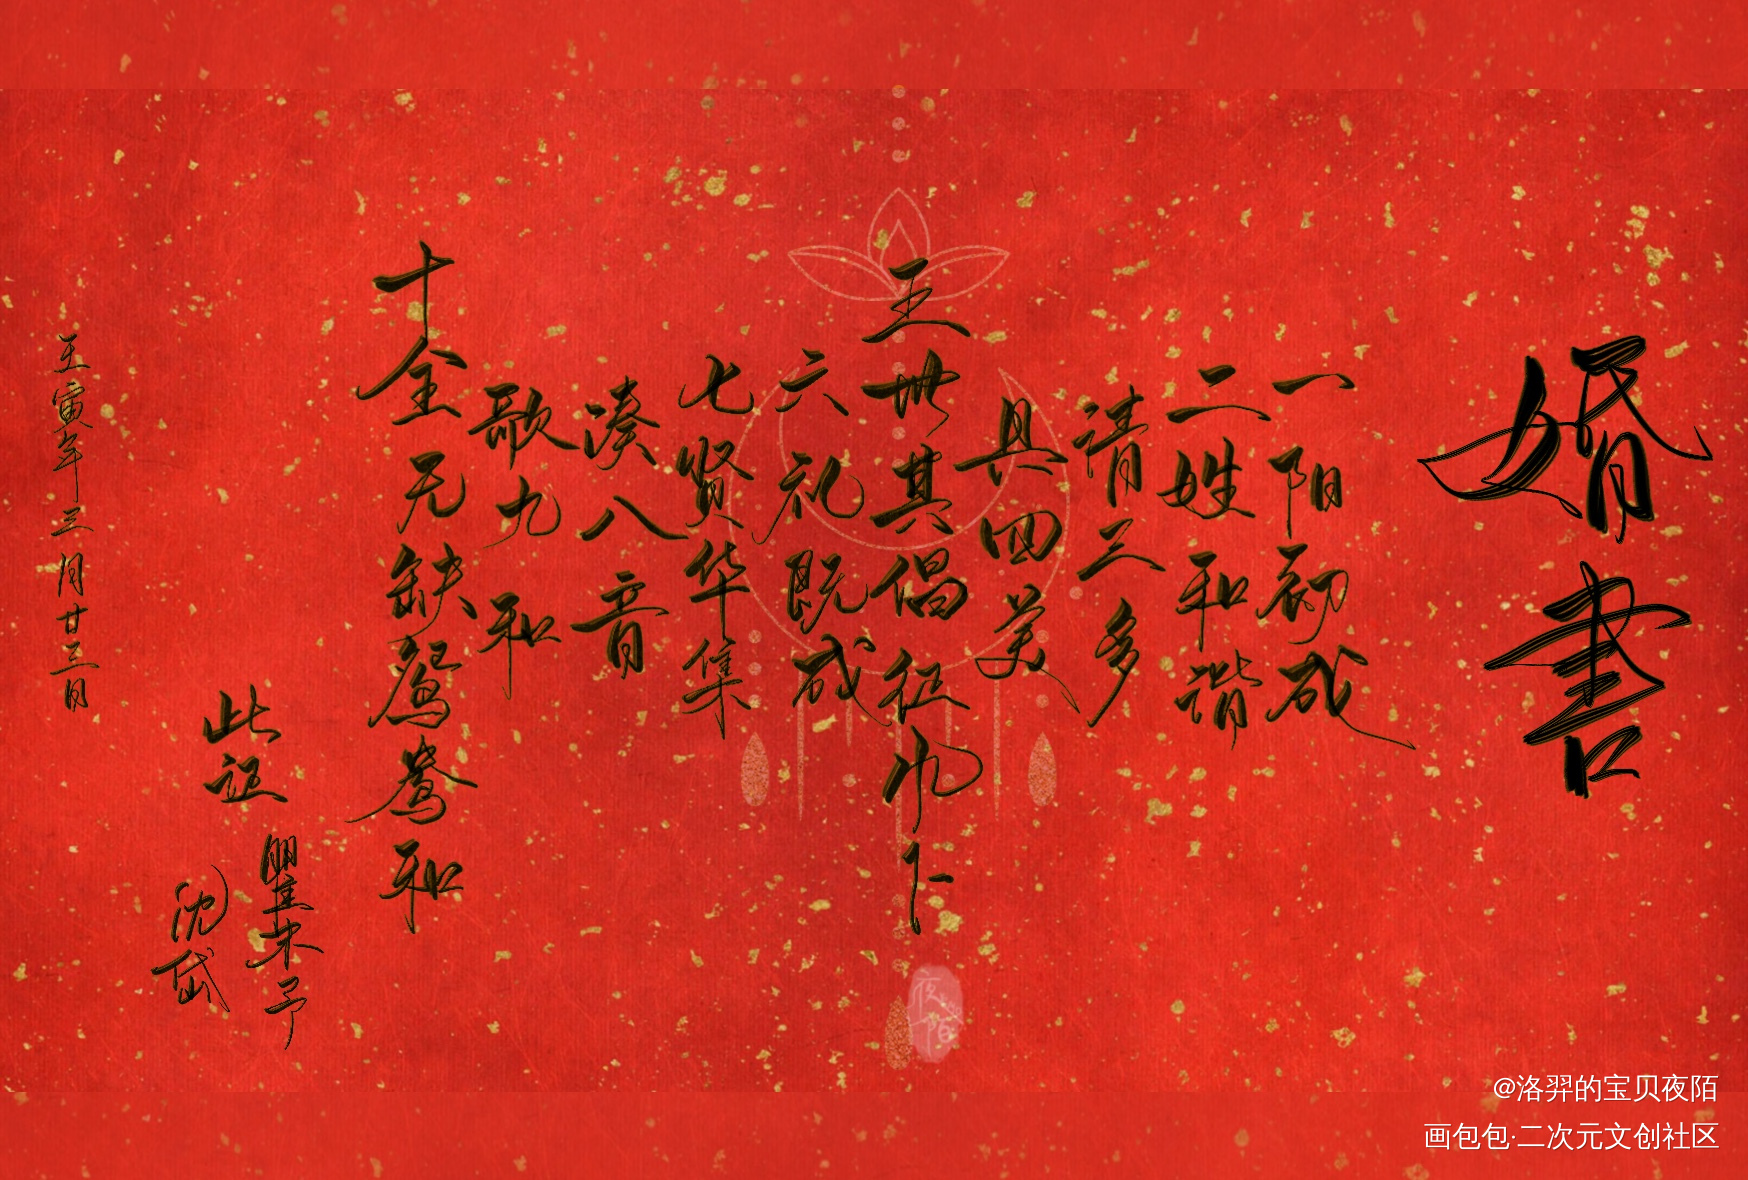 婚書
一阳初成
二姓和谐
请三多
具四美
五世其倡征凤卜
六礼既成
七贤华集
凑八音
歌九和
十全无缺鸳鸯和
此证
朱予
沈岱
壬寅年三月廿三日
夜陌
@洛羿的宝贝夜陌
画包包·二次元文创社区